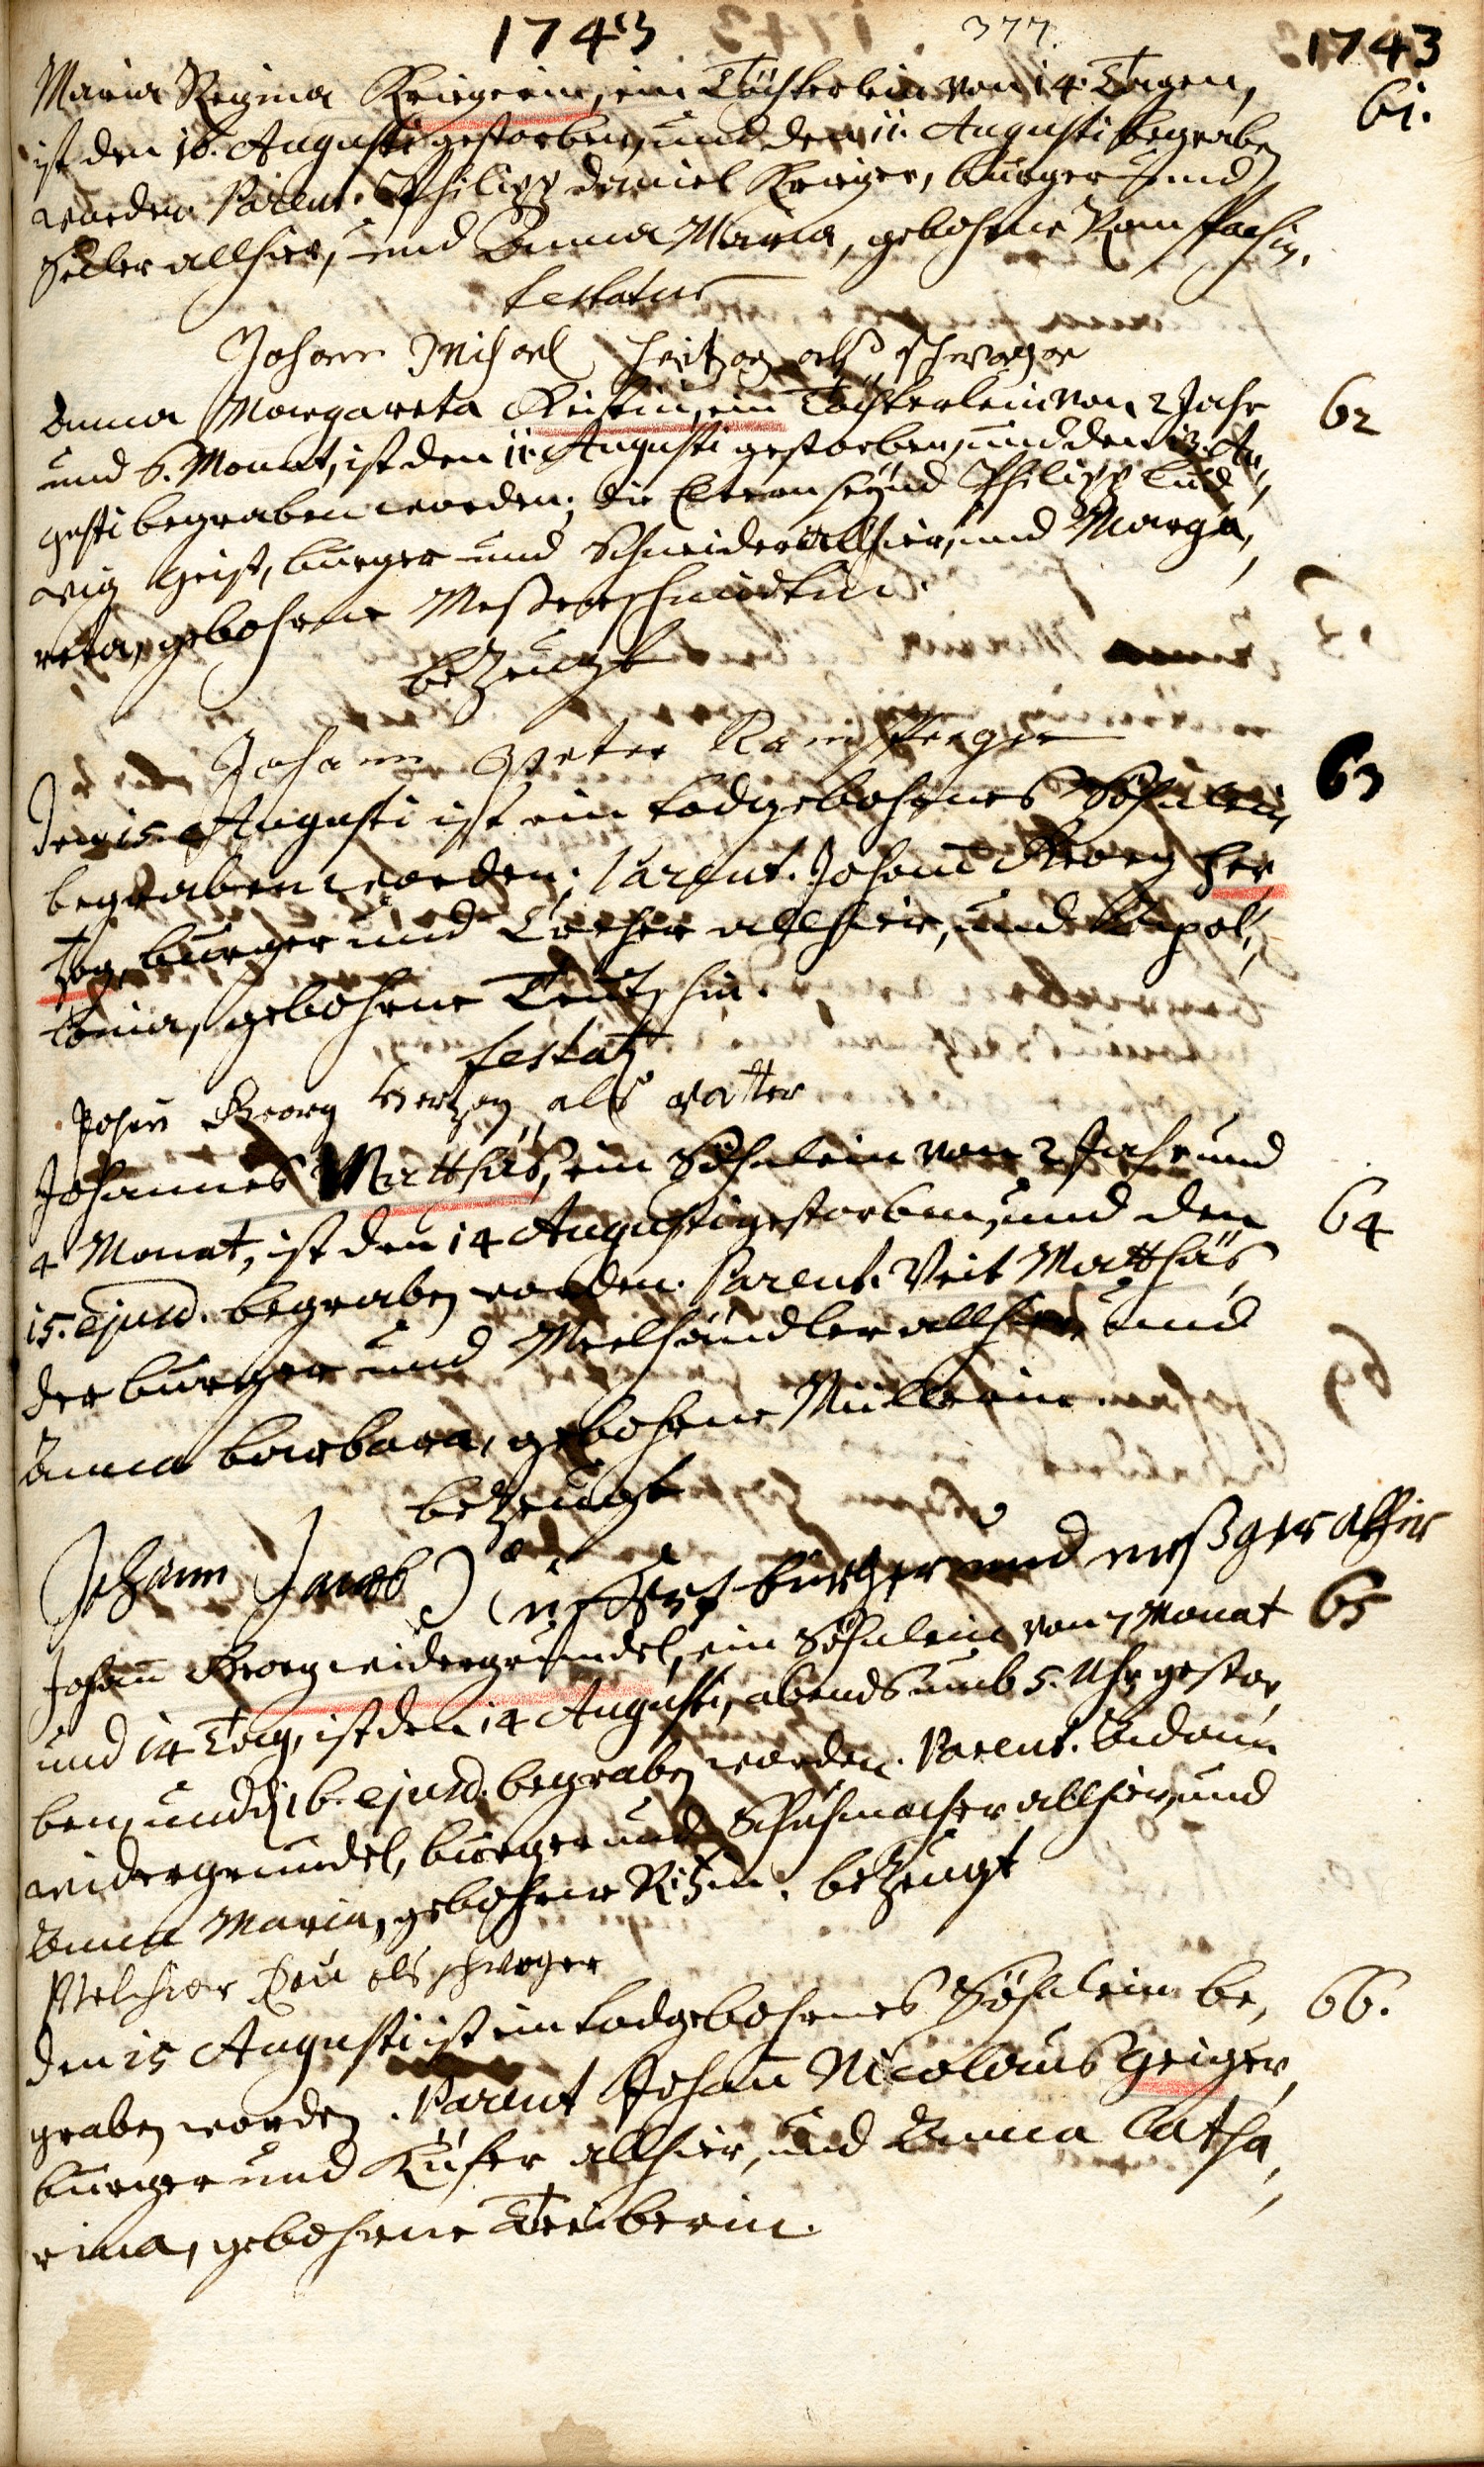 1743 377. 1743
Maria Regina Kriegerin, ein Töchterlein von 14. Tagen, 61.
ist den 10. Augusti gestorben, und den 11. Augusti begraben
worden. Parent. Philipp Daniel Krieger, burger und
Seiler allhier, und Anna Maria, gebohrne
testatur
Johann Michael Hertzog als schwager
Anna Margareta Geistin, ein Töchterlein von 2 Jahr 62
und 6. Monat, ist den 11. Augusti gestorben, und den 13. Au,
gusti begraben worden; die Eltern seynd Philipp Lud,
wig Geist, burger und Schneider allhier, und Marga,
reta, gebohrne Messerschmidtin.
bezeugt
Johann Peter
Den 15. Augusti ist ein todgebohrnes Söhnlein 63
begraben worden; Parent. Johann Georg Her,
tzog, burger und allhier, und Apol,
lonia, gebohrne Teutschin.
testat
Johann Georg Hertzog als vatter
Johannes Matthäs, ein Söhnlein von 2 Jahr und
4 Monat, ist den 14 Augusti gestorben, und den 64
15. ejusd. begraben worden. Parent. Veit Matthäs,
der burger und Meelhändler allhier, und
Anna Barbara, gebohrne Müllerin.
bezeugt
Johann Jacob burger und allhier
Johann Georg widergrundel, ein Söhnlein von 7 Monat 65
und 14 Tag, ist den 14 Augusti, abends umb 5. Uhr gestor,
ben, und d 16. ejusd. begraben worden. Parent. Adam
widergrundel, burger und Schuhmacher allhier, und
Anna Maria, gebohrne Ritzin. bezeugt
Melchior als schwager
Den 15 Augusti ist ein todgebohrnes Söhnlein be, 66.
graben worden. Parent Johann Nicolaus Geiger,
burger und Küfer allhier, und Anna Catha,
rina, gebohrne